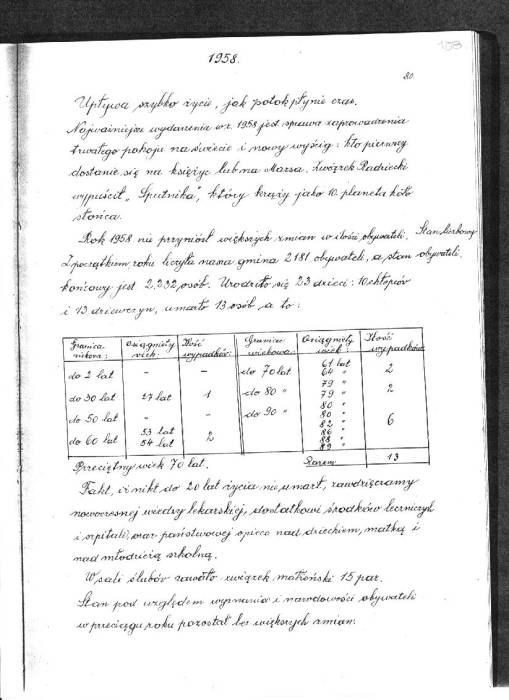 1958.
80.
Upływa szybko życie, jak potok płynie czas.
Najważniejsze wydarzenia w r. 1958 jest sprawa zaprowadzenia
trwałego pokoju na świecie i nowy wyścig: kto pierwszy
dostanie się na księżyc lub na Marsa. Związek Radziecki
wypuścił „Sputnika", który krąży jako 10. planeta koło
słońca.
Rok 1958 nie przyniósł większych zmian w ilości obywateli.
Stan liczbowy obywateli.
Z początkiem roku liczyła nasza gmina 2181 obywateli, a stan
końcowy jest 2.232 osób. Urodziło się 23 dzieci: 10 chłopców
i 13 dziewczyn, umarło 13 osób a to:
Granica wiekowa: Osiągnięty wiek: Ilość wypadków: Granice wiekowa: Osiągnięty wiek: Ilość wypadków:
do 2 lat - - do 70 lat 61 lat 64 " 2
do 30 lat 27 lat 1 do 80 " 79 " 79 " 2
do 50 lat - - do 90 " 80 " 80 " 82 " 86 " 88 " 89 " 6
do 60 lat 53 lat 54 lat 2
Razem 13
Przeciętny wiek 70 lat.
Fakt, iż nikt do 20 lat życia nie umarł, zawdzięczamy
nowoczesnej wiedzy lekarskiej, dostatkowi środków leczniczych
i szpitali, oraz państwowej opiece nad dzieckiem, matką i
nad młodzieżą szkolną.
W sali ślubów zawarło związek małżeński 15 par.
Stan pod względem wyznania i narodowości obywateli
w przeciągu roku pozostał bez większych zmian.